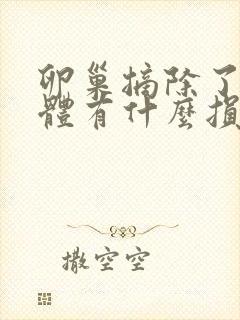 卵巢摘除了
體有什麼損
撒空空